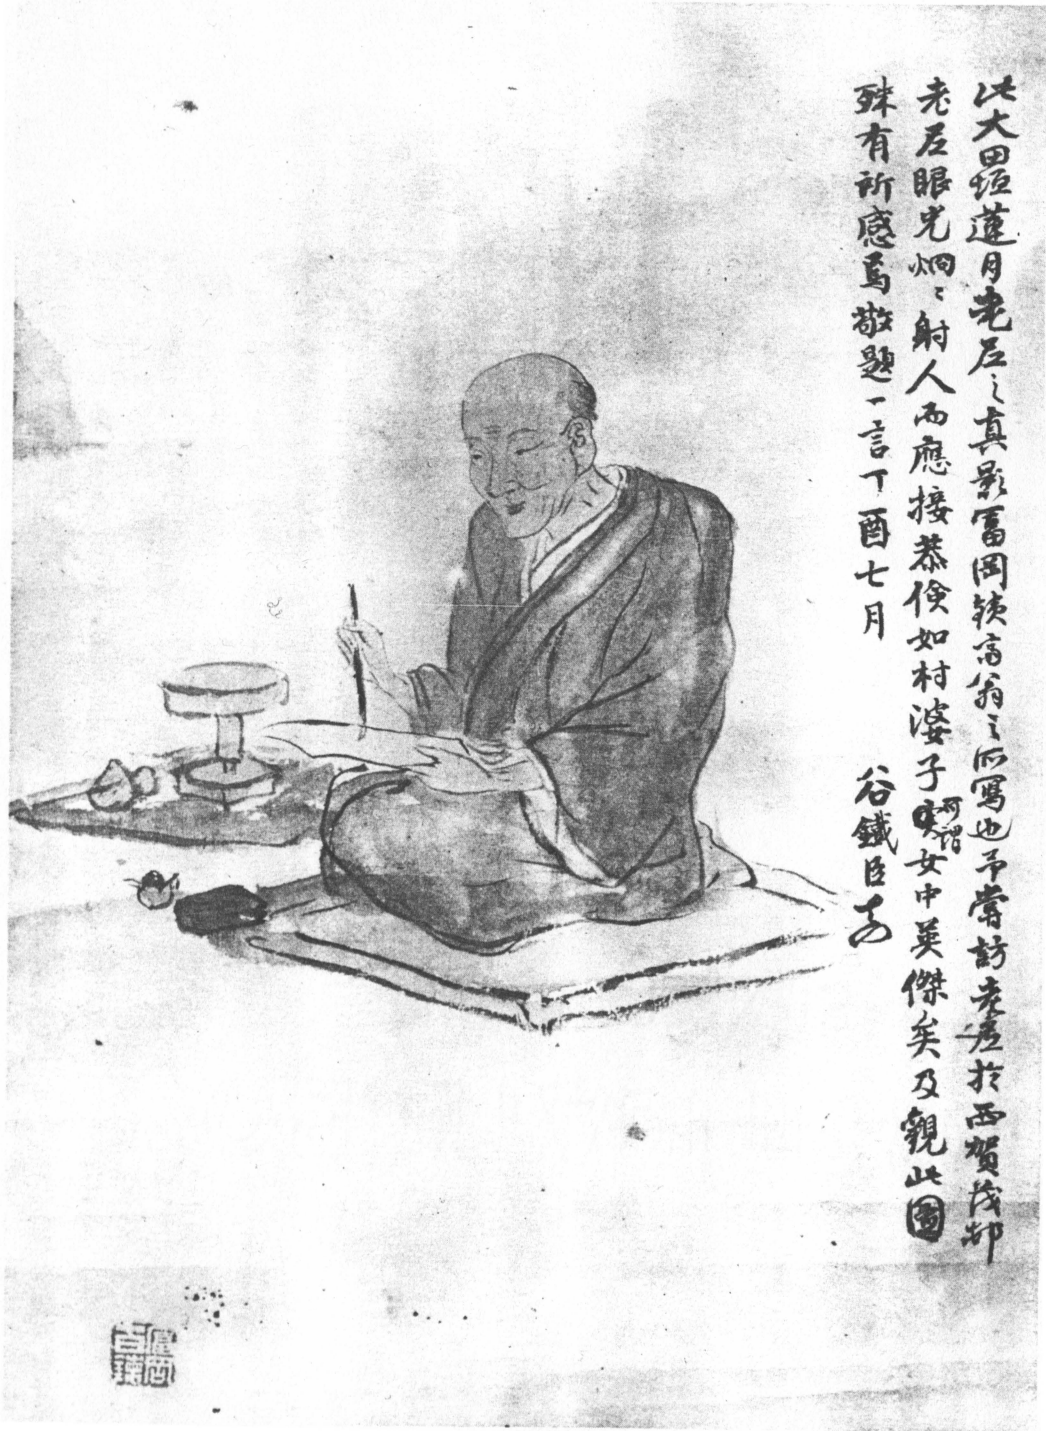 此大田垣蓮月老尼之真影冨岡鉄斎翁之所寫也予嘗訪老尼於西賀茂邨
老尼眼光炯〻射人而應接恭倹如村婆子可謂女中英傑矣及觀此圖
殊有所感焉敬題一言丁酉七月
谷鐵臣